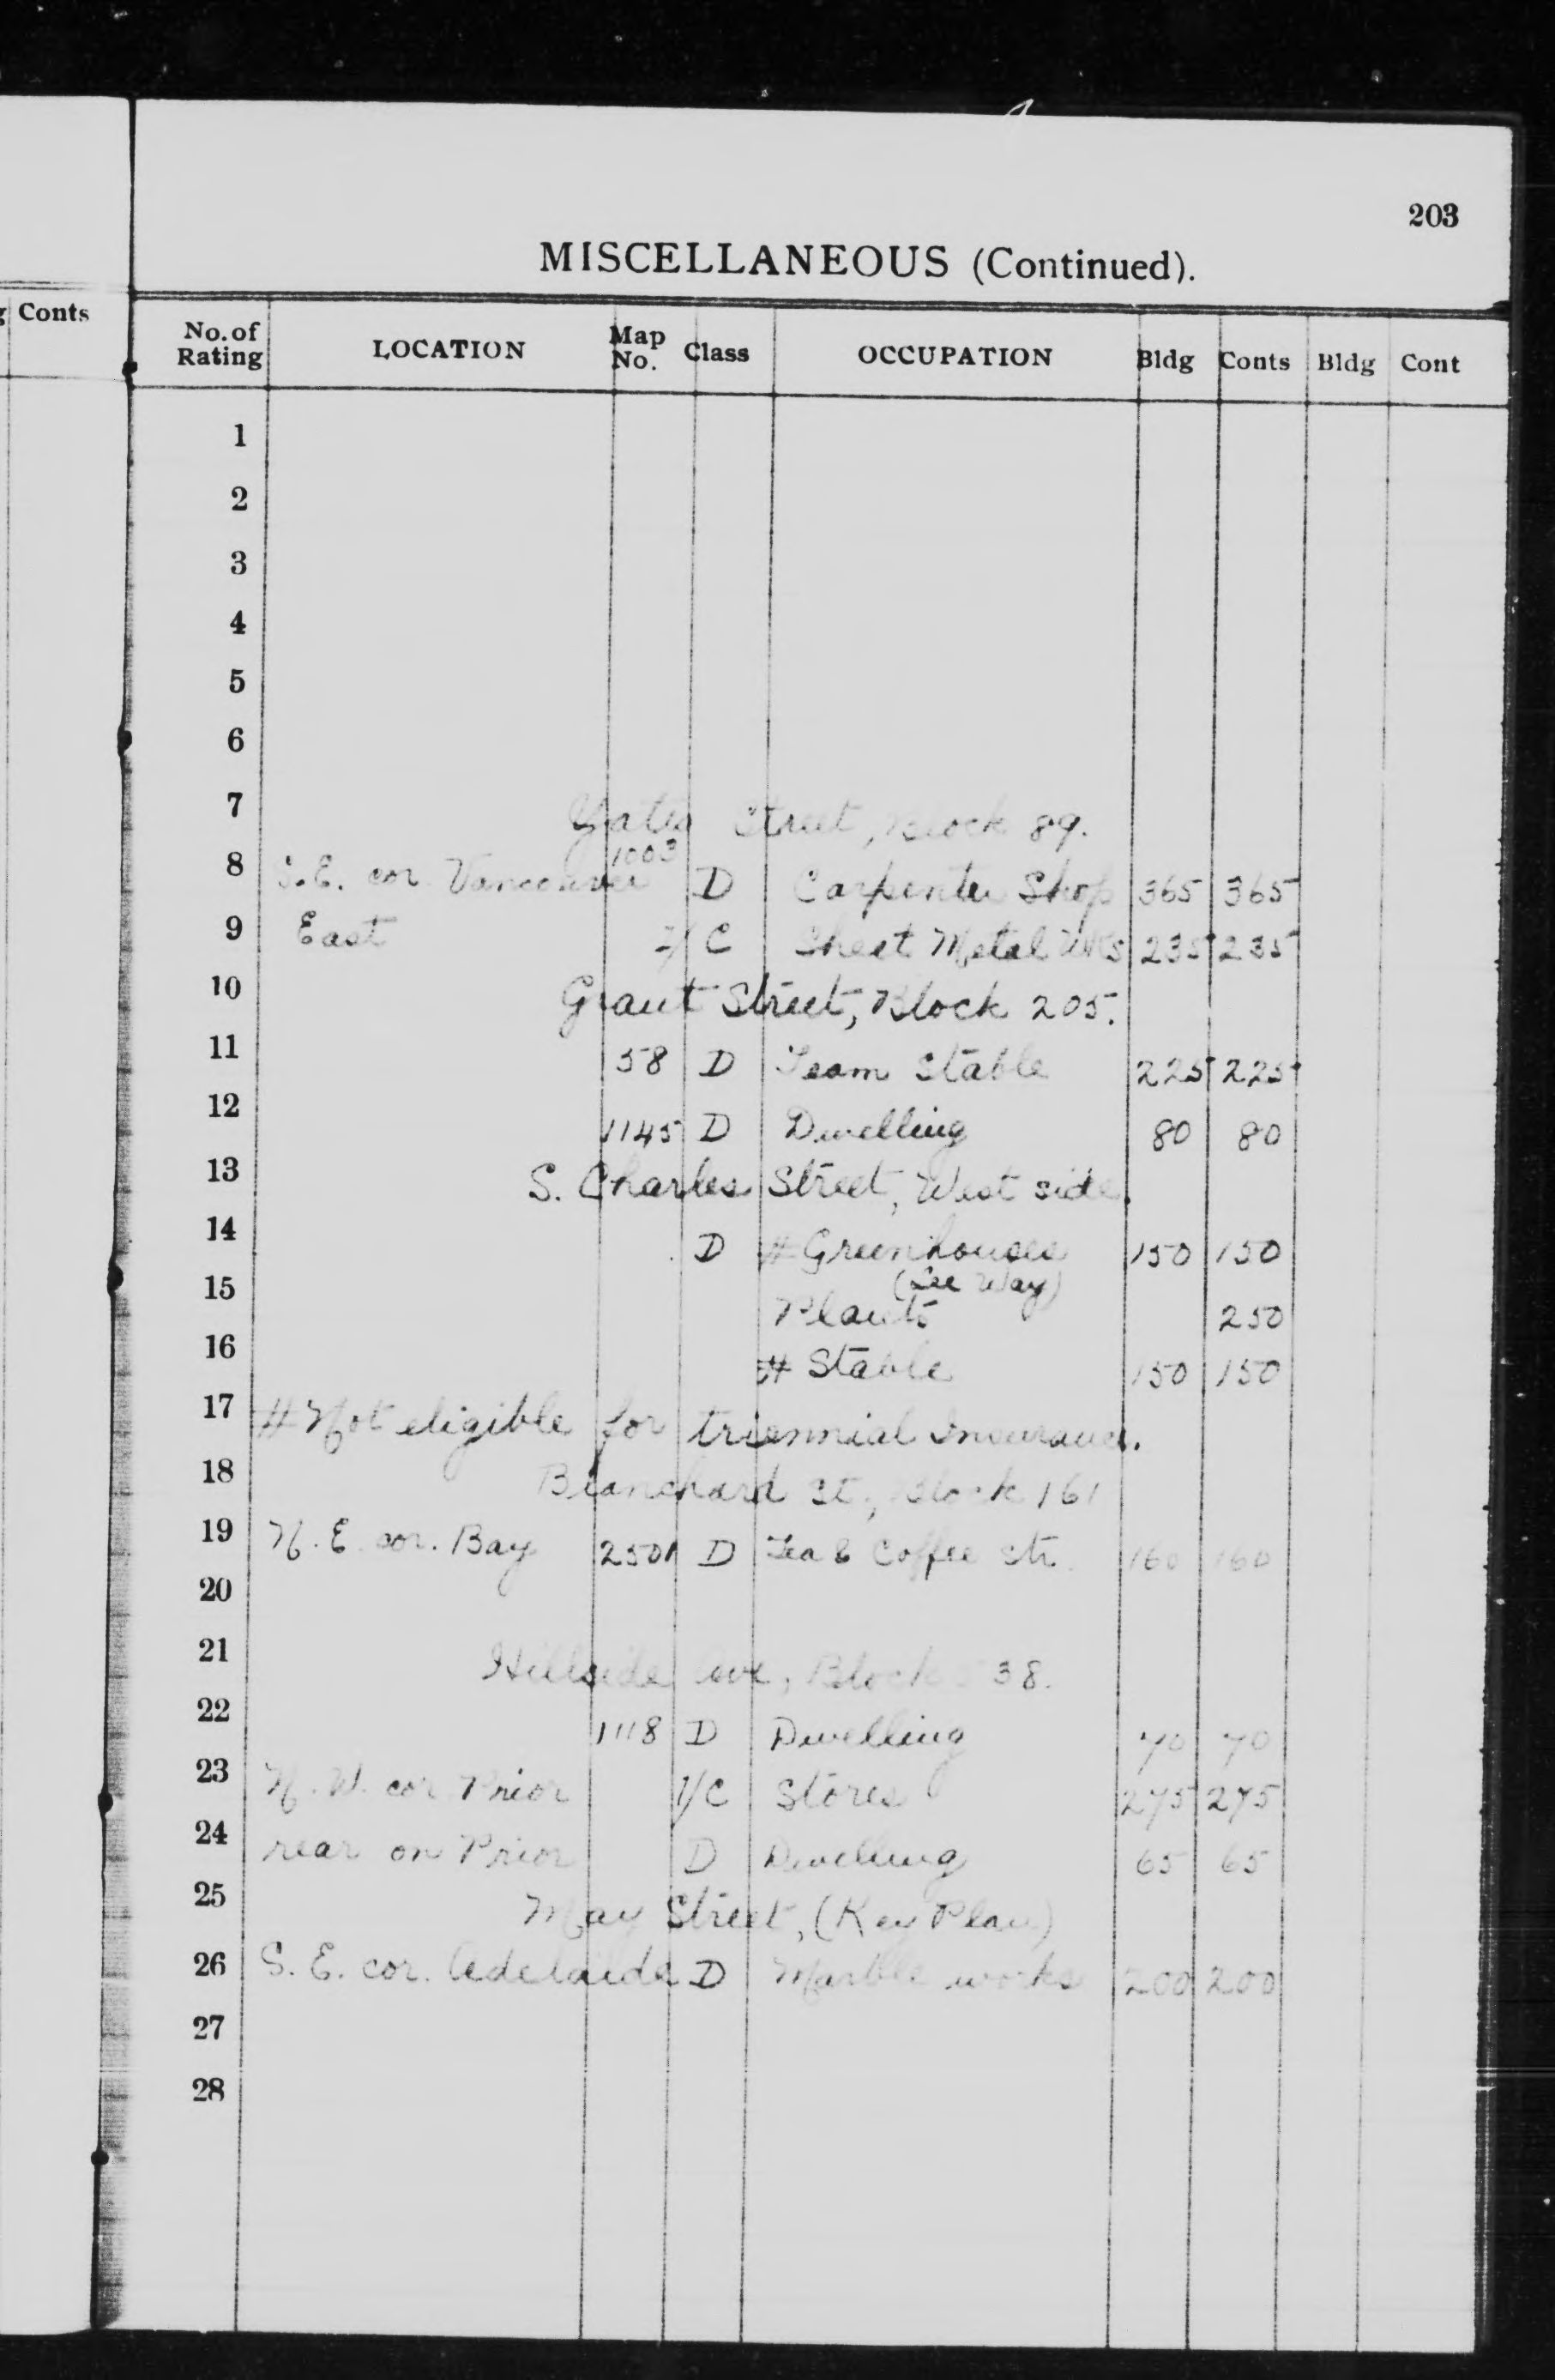 Conts
203
MISCELLANEOUS (Continued).
No. of Rating LOCATION Map No. Class OCCUPATION Bldg Conts Bldg Cont
1
2
3
4
5
6
7 Yates Street, Block 89.
8 S.E. cor Vancouver 1003 D Carpenter Shop 365 365
9 East C Sheet Metal Wks 235 235
10 Grant Street, Block 205.
11 58 D Team Stable 225 225
12 1145 D Dwelling 80 80
13 S. Charles Street, West side.
14 D # Greenhouses 150 150
(Lee Way)
15 Plants 250
16 # Stable 150 150
17 # Not eligible for triennial Insurance.
18 Blanchard St., Block 161
19 N.E. cor. Bay 2501 D Tea & Coffee Str. 160 160
20
21 Hillside Ave, Block 38.
22 1118 D Dwelling 70 70
23 N.W. cor Prior 1/C Stores 275 275
24 rear on Prior D Dwelling 65 65
25 May Street, (Key Plan)
26 S.E. cor. Adelaide D Marble works 200 200
27
28